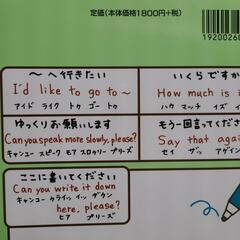 定価（本体価格1800円+税）
19200260
～へ行きたい
I'd like to go to～
アイド ライク トゥ ゴー トゥ
いくらですか
How much is i
ハウ マッチ イズ イ
ゆっくりお願いします
Can you speak more slowly, please?
キャンユー スピーク モア スロウリー プリーズ
もう一回言ってくださ
Say that again
セイ ザッ アゲイン
ここに書いてください
Can you write it down
キャンユー ライッ イッ ダウン
here, please?
ヒア プリーズ